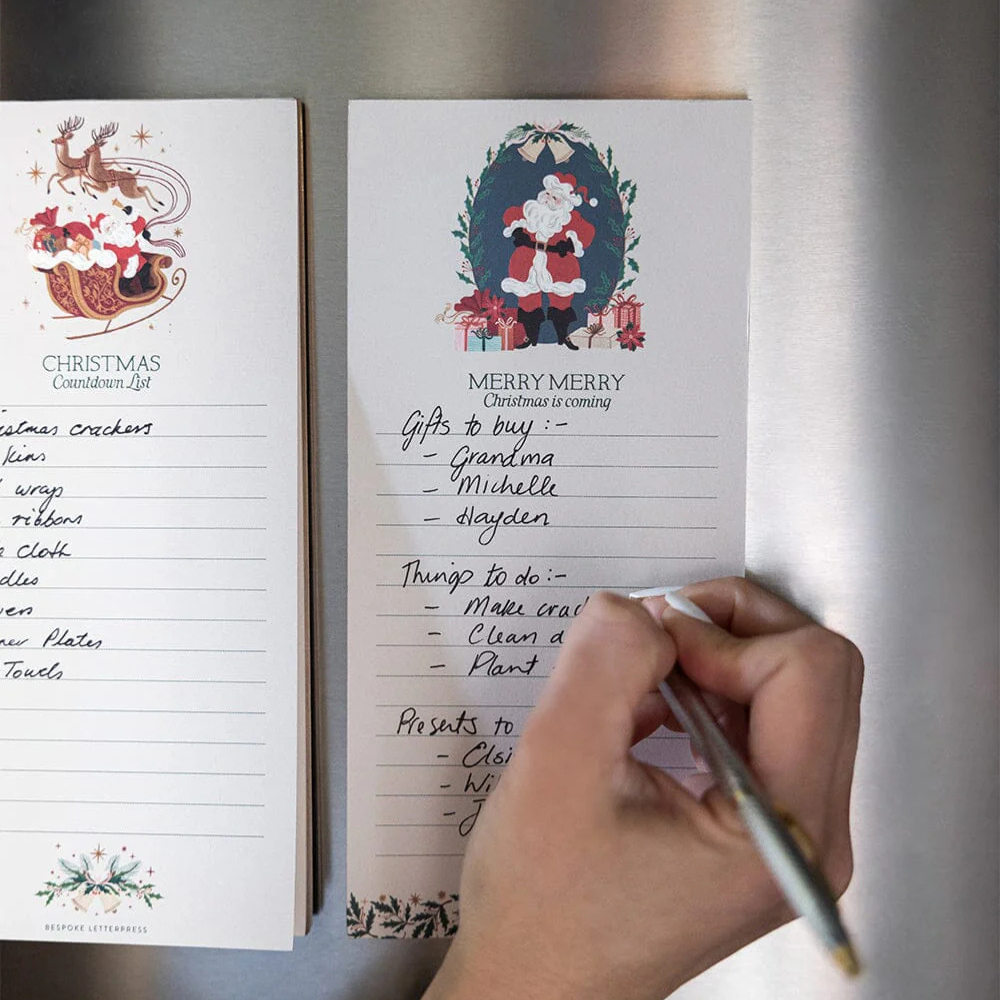 CHRISTMAS
Countdown List
crackers
wrap
ribbons
cloth
Plates
Towels
BESPOKE LETTERPRESS
MERRY MERRY
Christmas is coming
Gifts to buy :-
- Grandma
- Michelle
- Hayden
Things to do :-
- Make
- Clean
- Plant
Presents to